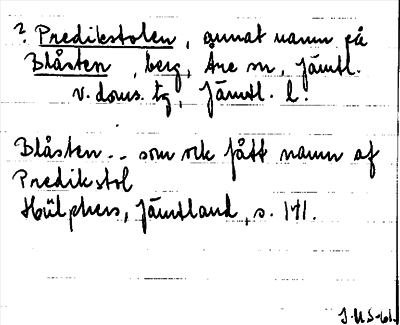 ? Predikstolen, annat namn på
Blåsten, berg, Åre sn, Jämtl.
v. doms. tg, Jämtl. l.
Blåsten .. som ock fått namn af
Predikstol
Hülphers, Jämtland, s. 171.